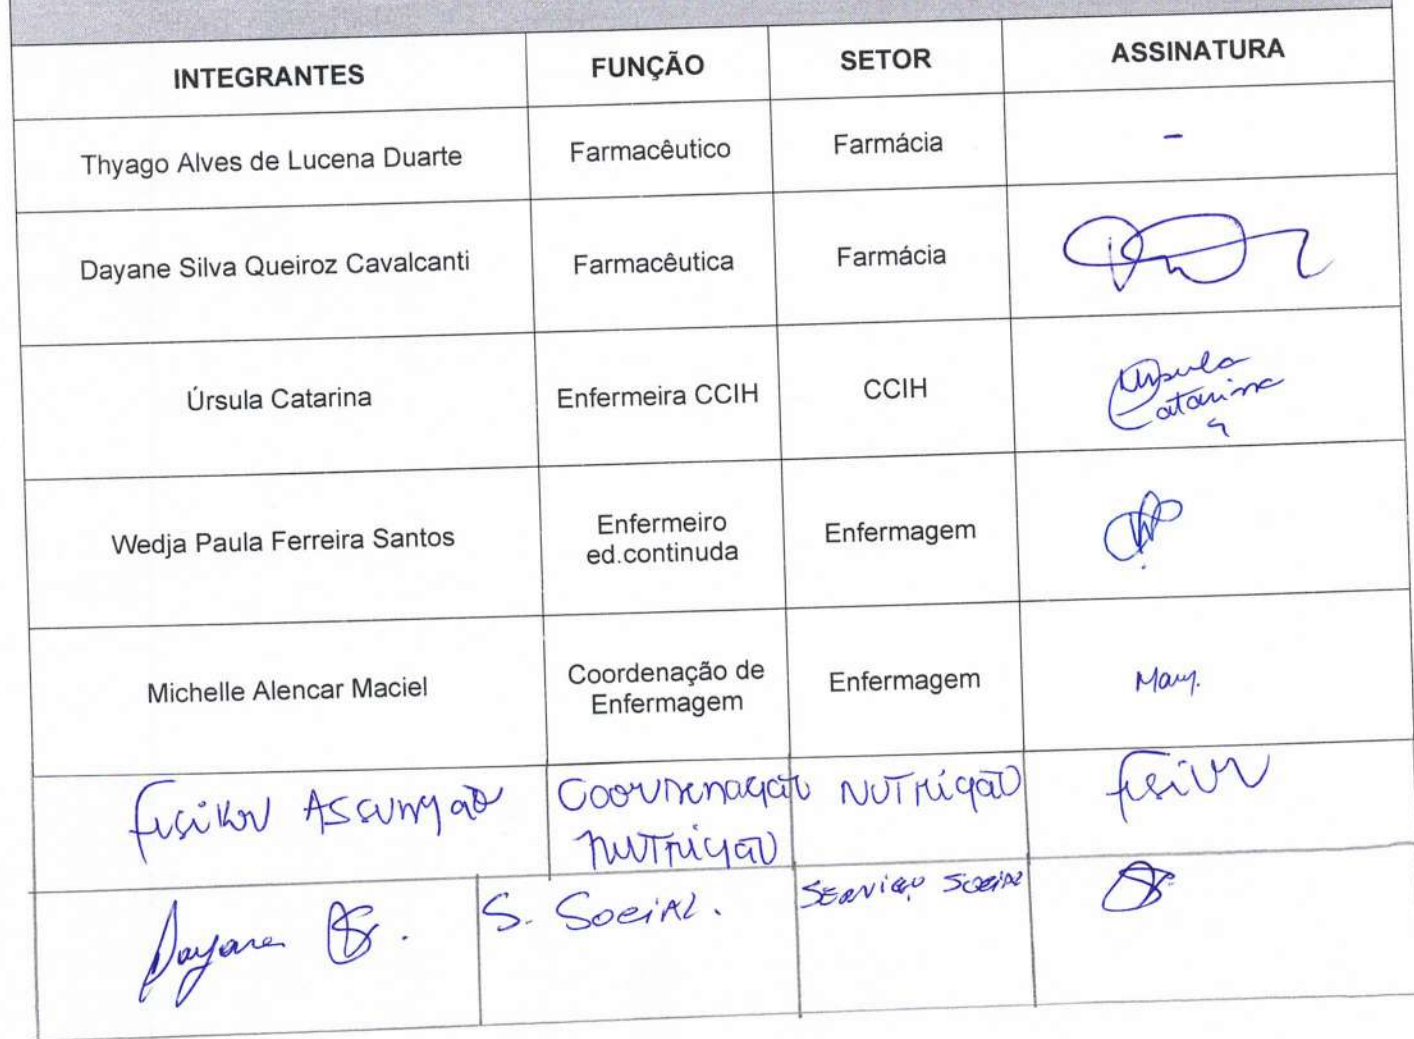 INTEGRANTES FUNÇÃO SETOR ASSINATURA
Thyago Alves de Lucena Duarte Farmacêutico Farmácia -
Dayane Silva Queiroz Cavalcanti Farmacêutica Farmácia
Úrsula Catarina Enfermeira CCIH CCIH Ursula
Catarina
Wedja Paula Ferreira Santos Enfermeiro Enfermagem
ed.continuda
Michelle Alencar Maciel Coordenação de Enfermagem
Enfermagem
Assunção Coordenação Nutrição
Nutrição
Dayane S. Social. Serviço Social